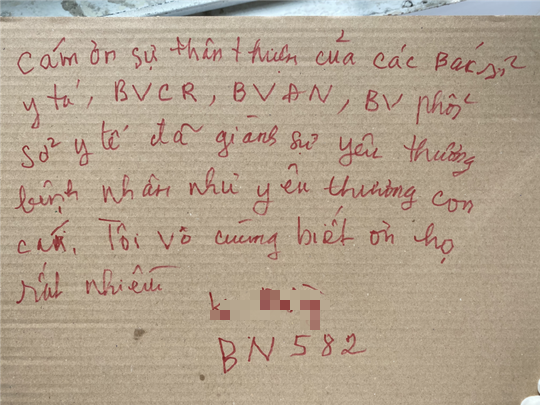 Cám ơn sự thân thiện của các Bác sỉ
y tá, BVCR, BVAN, BV phổi
Sở y tế đã giành sự yêu thương
bệnh nhân như yêu thương con
cái. Tôi vô cùng biết ơn họ
rất nhiều
BN 582